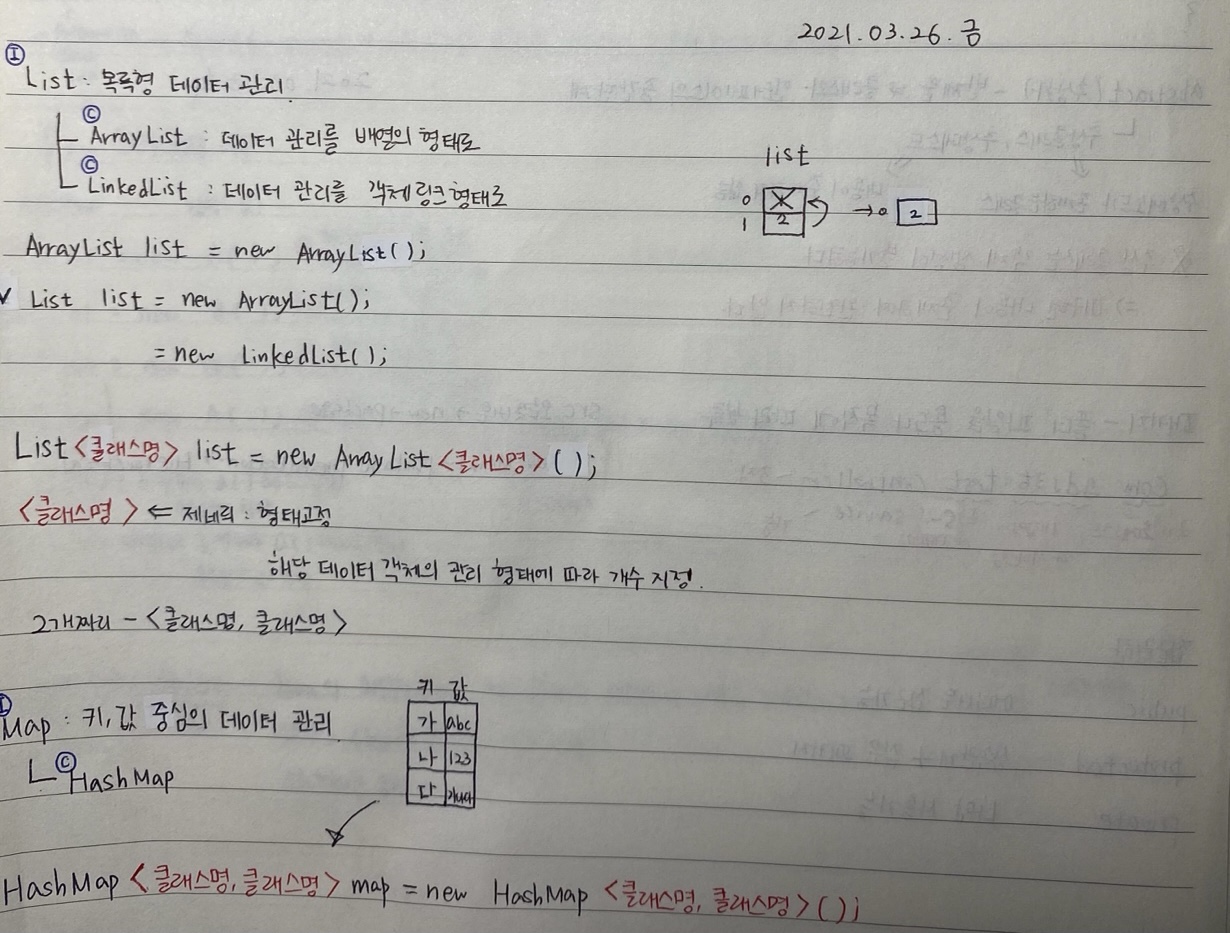 2021.03.26.금
Ⓘ
List : 목록형 데이터 관리.
Ⓒ
ArrayList : 데이터 관리를 배열의 형태로
Ⓒ
LinkedList : 데이터 관리를 객체링크형태로
list
0
1 2
→ 0 2
ArrayList list = new ArrayList();
✓ List list = new ArrayList();
= new LinkedList();
List <클래스명> list = new ArrayList <클래스명> ();
<클래스명> ⇐ 제네릭 : 형태고정
해당 데이터 객체의 관리 형태에 따라 개수 지정.
2개짜리 - <클래스명, 클래스명>
Ⓘ
Map : 키, 값 중심의 데이터 관리.
Ⓒ
HashMap
키 값
가 abc
나 123
다 가나다
HashMap <클래스명, 클래스명> map = new HashMap <클래스명, 클래스명> ();